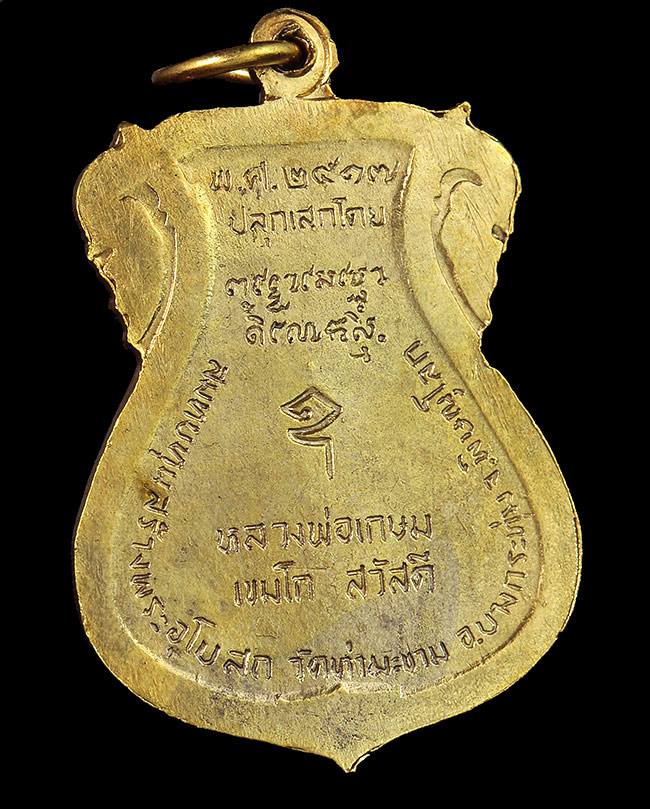 พ.ศ. ๒๕๑๗
ปลุกเสกโดย
หลวงพ่อเกษม
เขมโก สวัสดี
สมทบทุนสร้างพระอุโบสถ วัดท่ามะขาม อ.บางกระทุ่ม จ.พิษณุโลก